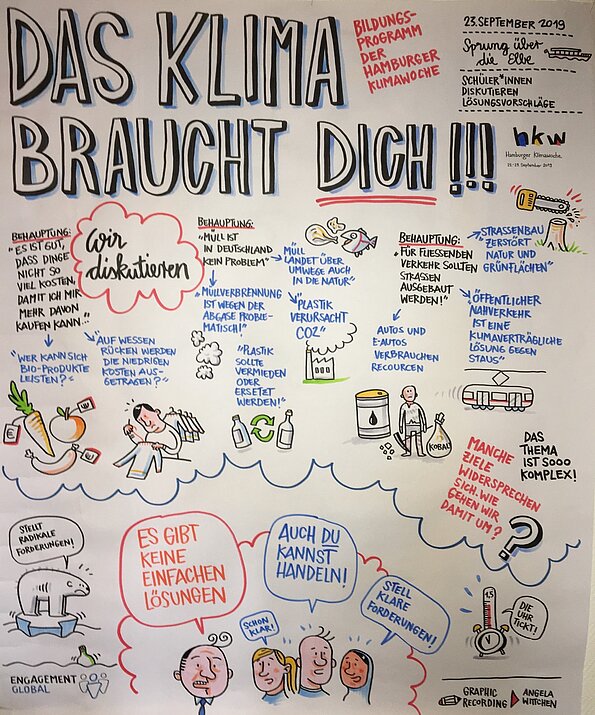 DAS KLIMA
BRAUCHT DICH!!!
BILDUNGS-
PROGRAMM
DER
HAMBURGER
KLIMAWOCHE
23. SEPTEMBER 2019
Sprung über
die Elbe
SCHÜLER*INNEN
DISKUTIEREN
LÖSUNGSVORSCHLÄGE
hkw
Hamburger Klimawoche
22.-29. September 2019
wir
diskutieren
BEHAUPTUNG:
"ES IST GUT,
DASS DINGE
NICHT SO
VIEL KOSTEN,
DAMIT ICH MIR
MEHR DAVON
KAUFEN KANN..."
"WER KANN SICH
BIO-PRODUKTE
LEISTEN?"
"AUF WESSEN
RÜCKEN WERDEN
DIE NIEDRIGEN
KOSTEN AUS-
GETRAGEN?"
€
€
€
BEHAUPTUNG:
"MÜLL IST
IN DEUTSCHLAND
KEIN PROBLEM"
"MÜLLVERBRENNUNG
IST WEGEN DER
ABGASE PROBLE-
MATISCH!"
MÜLL
LANDET ÜBER
UMWEGE AUCH
IN DIE NATUR"
"PLASTIK
VERURSACHT
CO2"
"PLASTIK
SOLLTE
VERMIEDEN
ODER
ERSETZT
WERDEN!"
BEHAUPTUNG:
"FÜR FLIESSENDEN
VERKEHR SOLLTEN
STRASSEN
AUSGEBAUT
WERDEN!"
STRASSENBAU
"ZERSTÖRT
NATUR UND
GRÜNFLÄCHEN"
"ÖFFENTLICHER
NAHVERKEHR
IST EINE
KLIMAVERTRÄGLICHE
LÖSUNG GEGEN
STAUS"
AUTOS UND
E-AUTOS
VERBRAUCHEN
RECOURCEN
KOBALT
MANCHE
ZIELE
WIDERSPRECHEN
SICH. WIE
GEHEN WIR
DAMIT UM?
DAS
THEMA
IST SOOO
KOMPLEX!
?
STELLT
RADIKALE
FORDERUNGEN!
ES GIBT
KEINE
EINFACHEN
LÖSUNGEN
AUCH DU
KANNST
HANDELN!
SCHON
KLAR!
STELL
KLARE
FORDERUNGEN!
1,5
DIE
UHR
TICKT!
ENGAGEMENT
GLOBAL
GRAPHIC
RECORDING
ANGELA
WITTCHEN